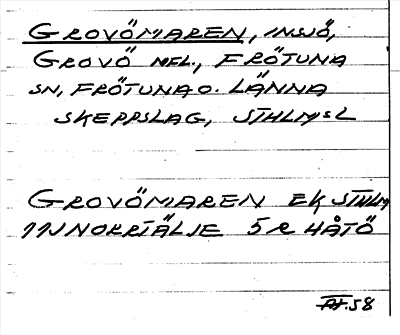 GROVÖMAREN, INSJÖ,
GROVÖ NFL., FRÖTUNA
SN, FRÖTUNA O. LÄNNA
SKEPPSLAG, STHLMS L
GROVÖMAREN EK STHLM
11J NORRTÄLJE 5 R HÅTÖ
.58